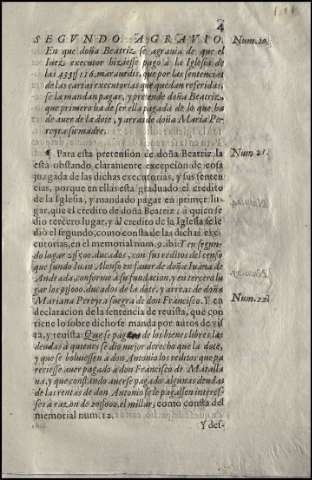 4
SEGVNDO AGRAVIO.
En que doña Beatriz se agrauia de que el
Iuez executor hiziesse pago à la Iglesia de
las 433 116. marauedis, que por las sentencias
de las cartas executorias que quedan referidas,
se la mandan pagar, y pretende doña Beatriz,
que primero ha de ser ella pagada de lo que ha
de auer de la dote, y arras de doña Maria Pe-
reyra su madre.
Num. 20.
¶ Para esta pretension de doña Beatriz la
està obstando claramente excepcion de cosa
juzgada de las dichas executorias, y sus senten-
cias, porque en ellas està graduado el credito
de la Iglesia, y mandado pagar en primer lu-
gar, que el credito de doña Beatriz, a quien se
dio tercero lugar, y al credito de la Iglesia se le
dio el segundo, como consta de las dichas exe-
cutorias, en el memorial num. 9. ibi: Y en segun-
do lugar ducados, con sus reditos del censo
que fundò Iuan Alonso en fauor de doña Iuana de
Andrada, conforme a su fundacion, y en tercero lu-
gar los ducados de la dote, y arras de doña
Mariana Pereyra suegra de don Francisco. Y en
declaracion de la sentencia de reuista, que con-
tiene lo sobredicho se manda por autos de vis-
ta, y reuista: Que se paguen de los bienes libres las
deudas à quien se dio mejor derecho que la dote,
y que se boluiessen à don Antonio los reditos que pa-
reciesse auer pagado à don Francisco de Matalla-
na, y que constando auerse pagado algunas deudas
de las rentas de don Antonio se le pagassen interes-
ses à razon de el millar, como consta del
memorial num. 12.
Num. 21.
Num. 22.
Y des-